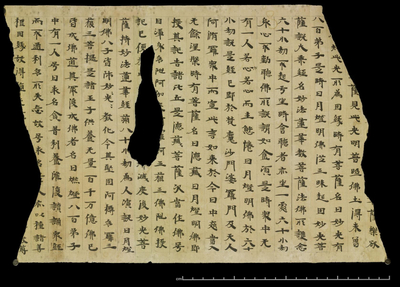 薩樂欲
見此光明普照佛土得未曾
此光所為因緣時有菩薩名曰妙光有
八百弟子是時日月燈明佛從三昧起因妙光菩
薩說大乘經名妙法蓮華教菩薩法佛所護念
六十小劫不起于座時會聽者亦坐一處六十小劫
身心不動聽佛所說謂如食頃是時眾中无
有一人若身若心而生懈惓日月燈明佛於六十
小劫說是經已即於梵魔沙門婆羅門及天人
阿脩羅眾中而宣此言如來於今日中夜當入
无餘涅槃時有菩薩名曰德藏日月燈明佛即
授其記告諸比丘是德藏菩薩次當作佛号
曰淨身多陀阿三藐三佛陀佛授
記已便滅度後妙光菩
薩持妙法蓮華經滿八十小劫為人演說日月
燈明佛八子皆師妙光教化令其堅固阿耨多羅三
藐三菩提是諸王子供養无量百千万億佛已
皆成佛道其最後成佛者名曰燃燈八百弟子
中有一人号曰求名貪著利養雖復讀誦眾經
而不通利多所忘失故号求名亦以種諸善
根因緣故得值